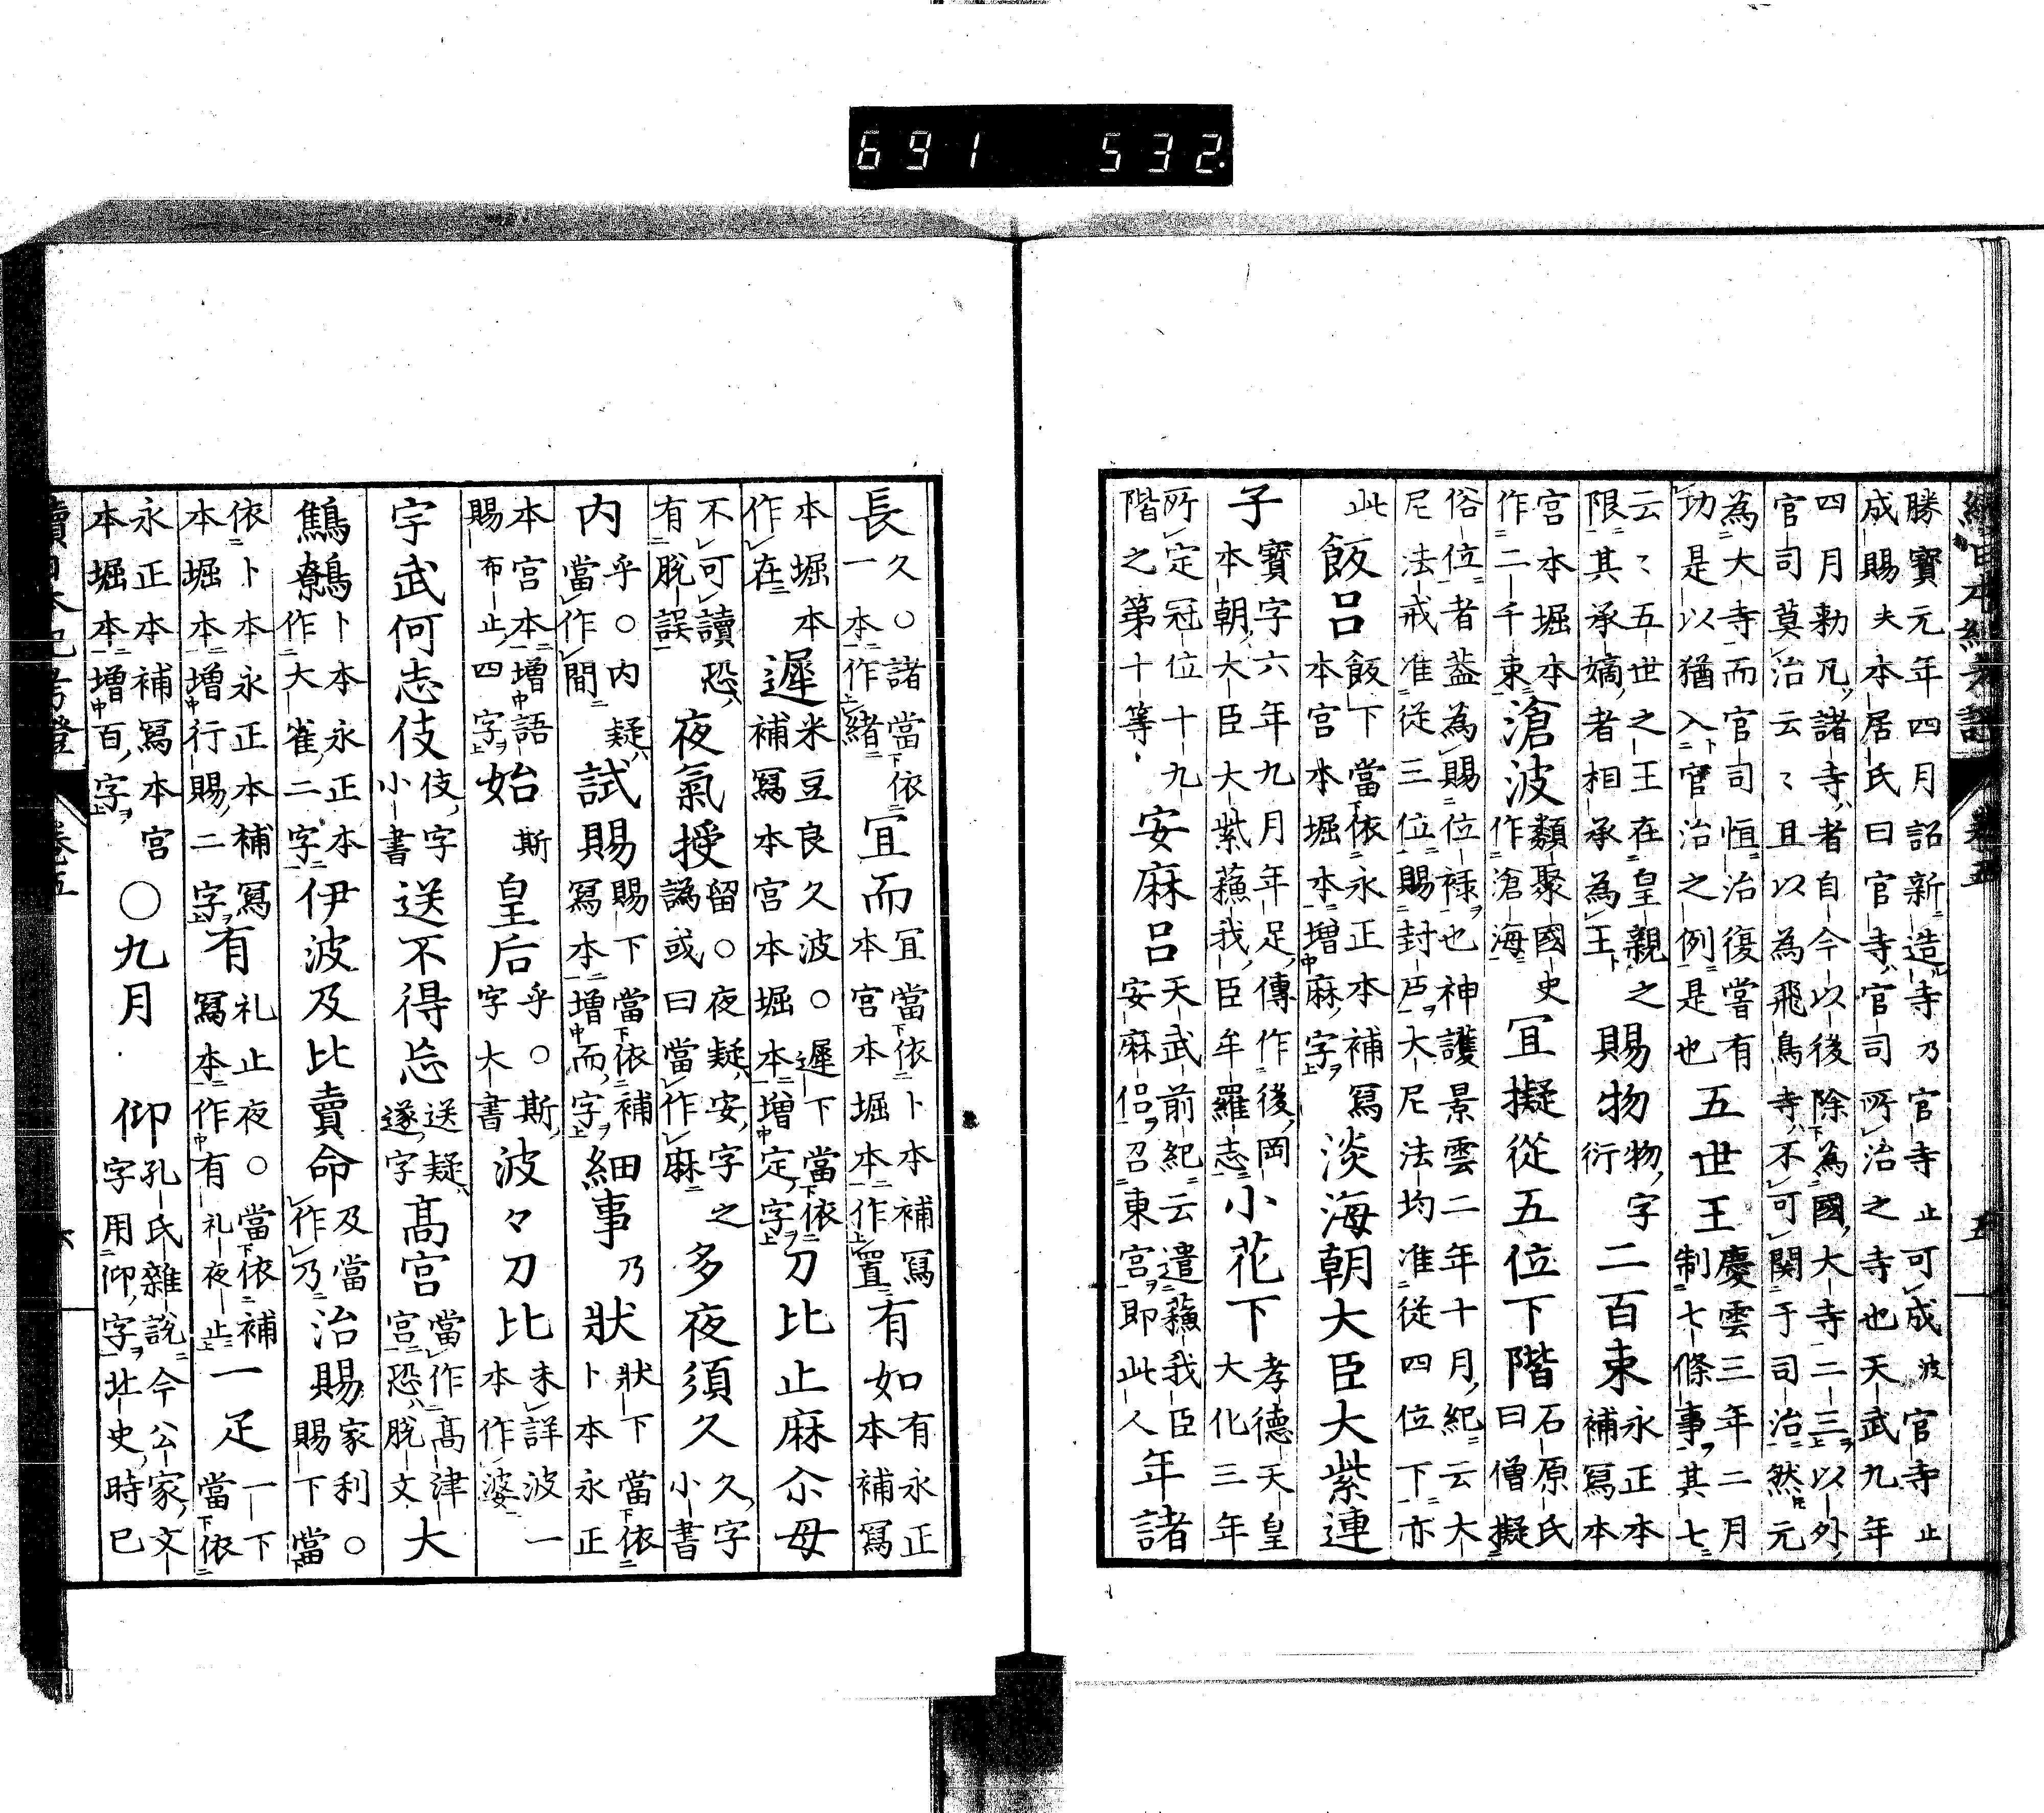 691 532
勝寶元年四月詔新造寺乃官寺止可成波官寺止
成賜夫本居氏曰官寺官司所治之寺也天武九年
四月勅凡諸寺者自今以後除為國大寺二三以外
官司莫治云〻且以為飛鳥寺不可関于司治然元
為大寺而官司恒治復嘗有
功是以猶入官治之例是也
五世王
慶雲三年二月
制七條事其七
云〻五世之王在皇親之
限其承嫡者相承為王
賜物
物字
衍
二百束
永正本
補寫本
宮本堀本
作二千束
滄波
類聚國史
作滄海
宜擬從五位下階
石原氏
曰僧擬
俗位者葢為賜位祿也神護景雲二年十月紀云大
尼法戒准從三位賜封戸大尼法均准從四位下亦
此
飯呂
飯下當依永正本補寫
本宮本堀本増麻字
淡海朝大臣大紫連
子
寶字六年九月年足傳作後岡
本朝大臣大紫蘓我臣牟羅志
小花下
孝德天皇
大化三年
所定冠位十九
階之第十等
安麻呂
天武前紀云遣蘓我臣
安麻侶召東宮即此人
年諸
續日本紀考證 卷五 五
長
久○諸當依
一本作緒
宜而
宜當依卜本補寫
本宮本堀本作置
有如
有永正
本補寫
本堀本
作在
遲
米豆良久波○遲下當依
補寫本宮本堀本増定字
刀比止麻尒母
不可讀恐
有脱誤
夜氣授
留○夜疑安字之
譌或曰當作麻
多夜須久
久字
小書
内
乎○内疑
當作間
試賜
賜下當依補
寫本増而字
細事
乃
狀
狀下當依
卜本永正
本宮本増語
賜布止四字
始
斯
皇后
乎○斯
字大書
波々刀比
未詳波一
本作婆
字武何志伎
伎字
小書
送不得忘
送疑
遂字
髙宮
當作髙津
宮恐脱文
大
鷦鷯
卜本永正本
作大雀二字
伊波及比賣命
及當
作乃
治賜
家利○
賜下當
依卜本永正本補寫
本堀本増行賜二字
有
礼止夜○當依補
寫本作有礼夜止
一疋
一下
當依
永正本補寫本宮
本堀本増百字
○九月
仰
孔氏雜說今公家文
字用仰字北史時巳
續日本紀考證 卷五 六